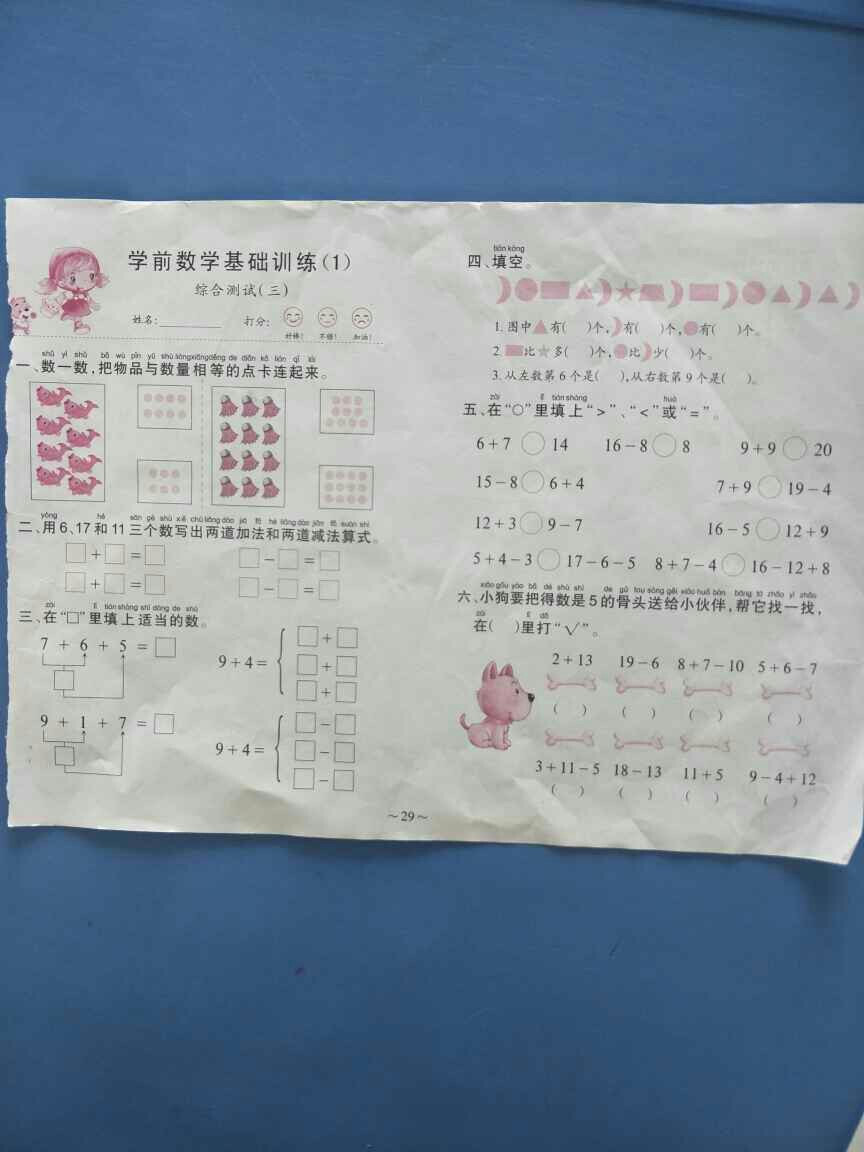 学前数学基础训练(1)
综合测试(三)
姓名:________ 打分:
好棒! 不错! 加油!
shǔ yì shǔ bǎ wù pǐn yǔ shù liàng xiāng děng de diǎn kǎ lián qǐ lái
一、数一数,把物品与数量相等的点卡连起来。
yòng hé sān gè shù xiě chū liǎng dào jiā fǎ hé liǎng dào jiǎn fǎ suàn shì
二、用6、17和11三个数写出两道加法和两道减法算式。
□+□=□ □-□=□
□+□=□ □-□=□
zài lǐ tián shàng shì dàng de shù
三、在“□”里填上适当的数。
7 + 6 + 5 = □
9+4=
□+□
□+□
□+□
9 + 1 + 7 = □
9+4=
□-□
□-□
□-□
tián kòng
四、填空。
1. 图中▲有( )个,有( )个,有( )个。
2. 比☆多( )个,比少( )个。
3. 从左数第6个是( ),从右数第9个是( )。
zài lǐ tián shàng huò
五、在“○”里填上“>”、“<”或“=”。
6+7○14 16-8○8 9+9○20
15-8○6+4 7+9○19-4
12+3○9-7 16-5○12+9
5+4-3○17-6-5 8+7-4○16-12+8
xiǎo gǒu yào bǎ dé shù shì de gǔ tou sòng gěi xiǎo huǒ bàn bāng tā zhǎo yì zhǎo
六、小狗要把得数是5的骨头送给小伙伴,帮它找一找,
zài lǐ dǎ
在( )里打“√”。
2+13 19-6 8+7-10 5+6-7
( ) ( ) ( ) ( )
3+11-5 18-13 11+5 9-4+12
( ) ( ) ( ) ( )
~29~